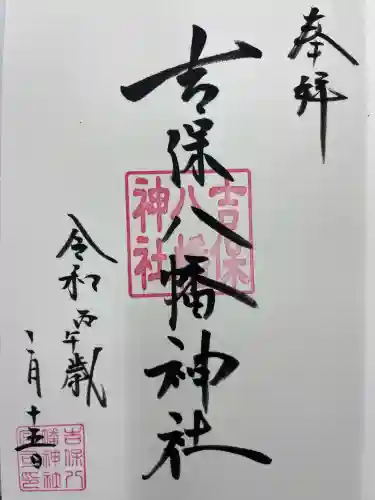 奉拝
吉保八幡神社
吉保
八幡
神社
令和丙午歳
一月十五日
吉保八
幡神社